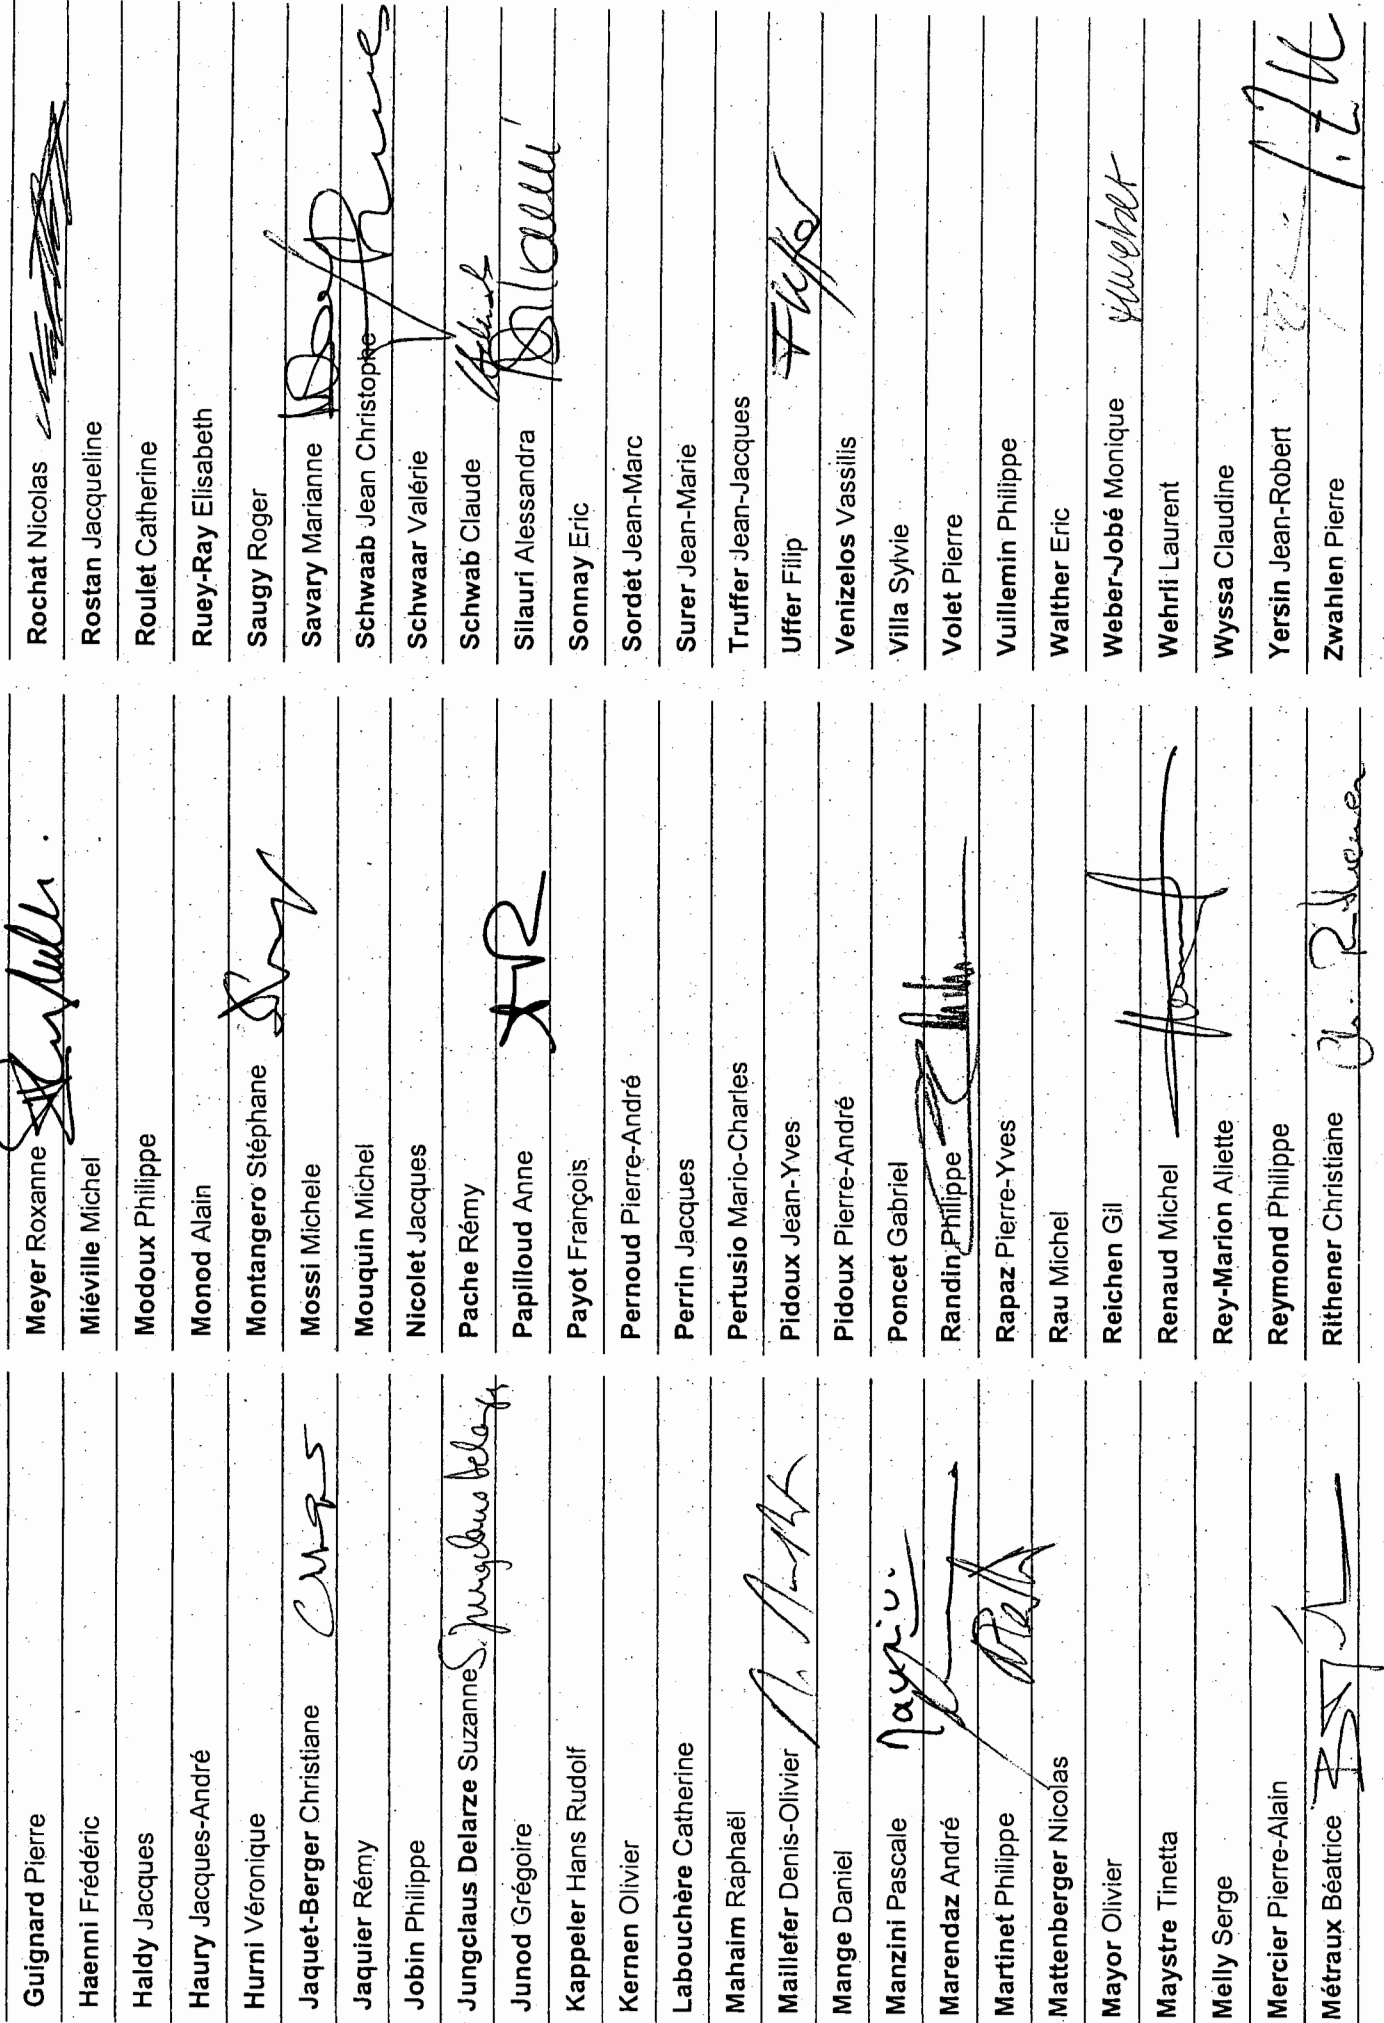 Guignard Pierre
Haenni Frédéric
Haldy Jacques
Haury Jacques-André
Hurni Véronique
Jaquet-Berger Christiane
Jaquier Rémy
Jobin Philippe
Jungclaus Delarze Suzanne S. Jungclaus Delarze
Junod Grégoire
Kappeler Hans Rudolf
Kernen Olivier
Labouchère Catherine
Mahaim Raphaël
Maillefer Denis-Olivier
Mange Daniel
Manzini Pascale Manzini
Marendaz André
Martinet Philippe
Mattenberger Nicolas
Mayor Olivier
Maystre Tinetta
Melly Serge
Mercier Pierre-Alain
Métraux Béatrice
Meyer Roxanne
Miéville Michel
Modoux Philippe
Monod Alain
Montangero Stéphane
Mossi Michele
Mouquin Michel
Nicolet Jacques
Pache Rémy
Papilloud Anne
Payot François
Pernoud Pierre-André
Perrin Jacques
Pertusio Mario-Charles
Pidoux Jean-Yves
Pidoux Pierre-André
Poncet Gabriel
Randin Philippe
Rapaz Pierre-Yves
Rau Michel
Reichen Gil
Renaud Michel
Rey-Marion Aliette
Reymond Philippe
Rithener Christiane Ch. Rithener
Rochat Nicolas
Rostan Jacqueline
Roulet Catherine
Ruey-Ray Elisabeth
Saugy Roger
Savary Marianne
Schwaab Jean Christophe
Schwaar Valérie
Schwab Claude
Silauri Alessandra
Sonnay Eric
Sordet Jean-Marc
Surer Jean-Marie
Truffer Jean-Jacques
Uffer Filip
Venizelos Vassilis
Villa Sylvie
Volet Pierre
Vuillemin Philippe
Walther Eric
Weber-Jobé Monique
Wehrli Laurent
Wyssa Claudine
Yersin Jean-Robert
Zwahlen Pierre